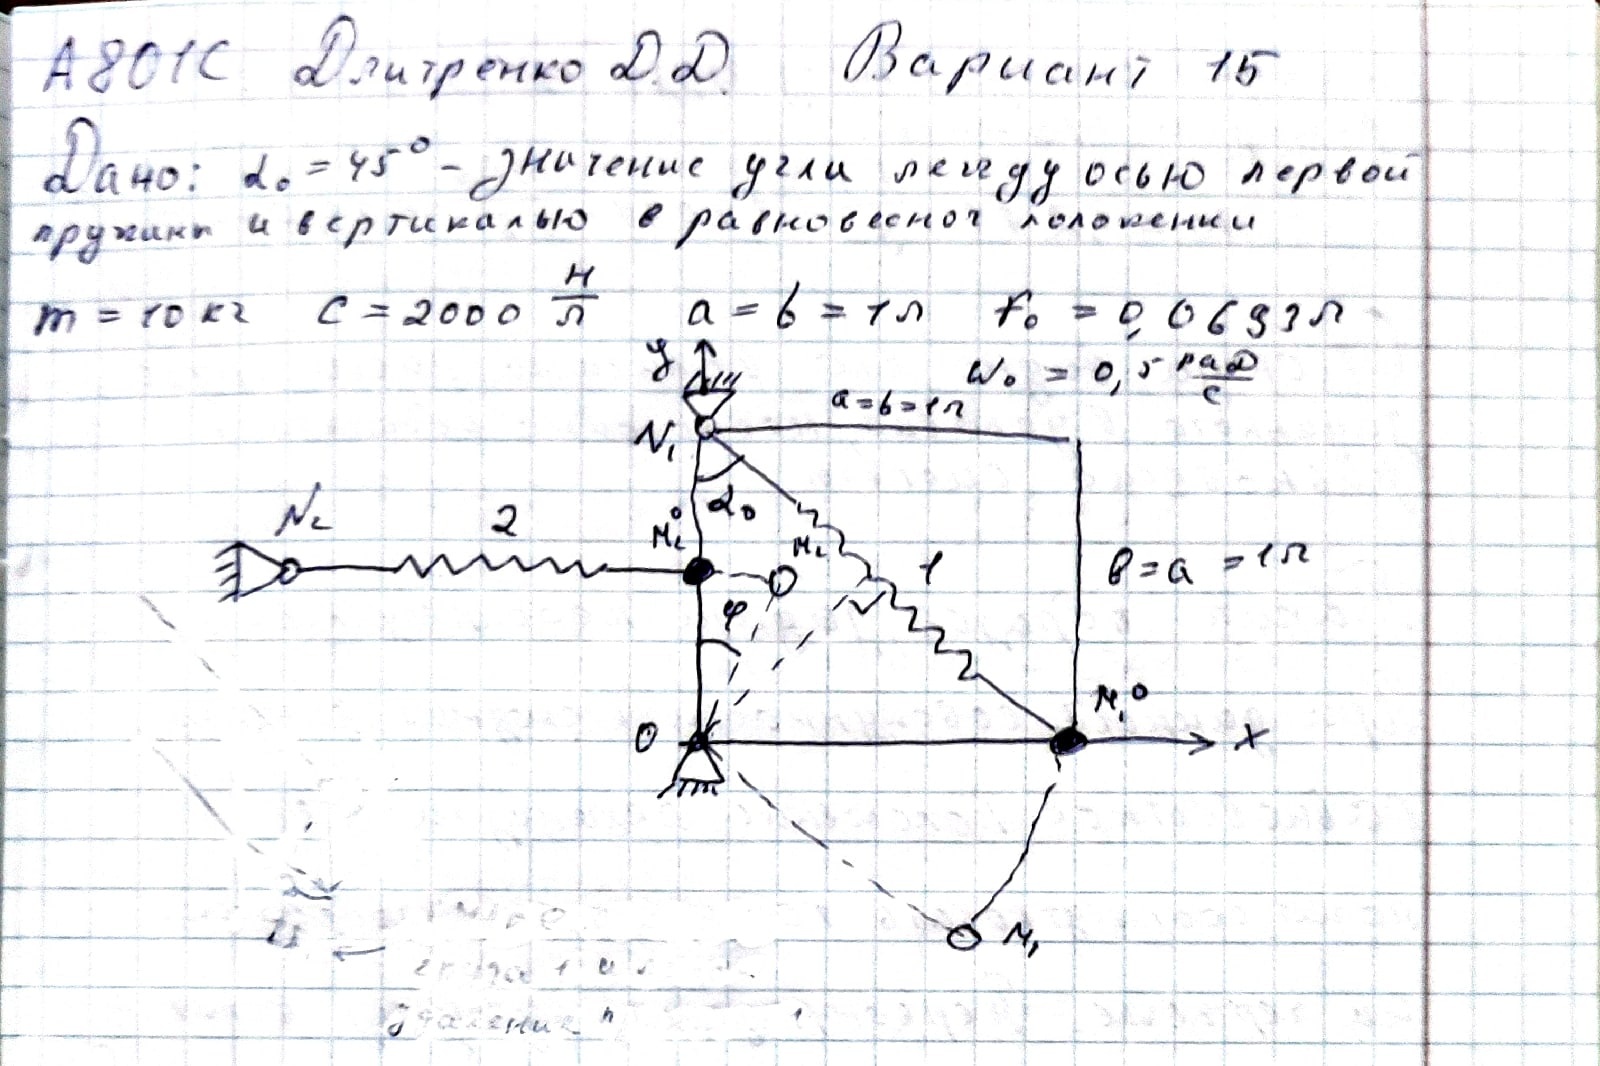 А801С Дмитренко Д.Д. Вариант 15
Дано: α₀ = 45° - значение угла между осью первой
пружины и вертикалью в равновесном положении
m = 10 кг c = 2000 Н/м a = b = 1 м f₀ = 0,0693 м
ω₀ = 0,5 рад/с
y
a=b=1м
N₁
α₀
N₂
2
M₂⁰
M₂
1
b=a=1м
φ
O
M₁⁰
x
M₁